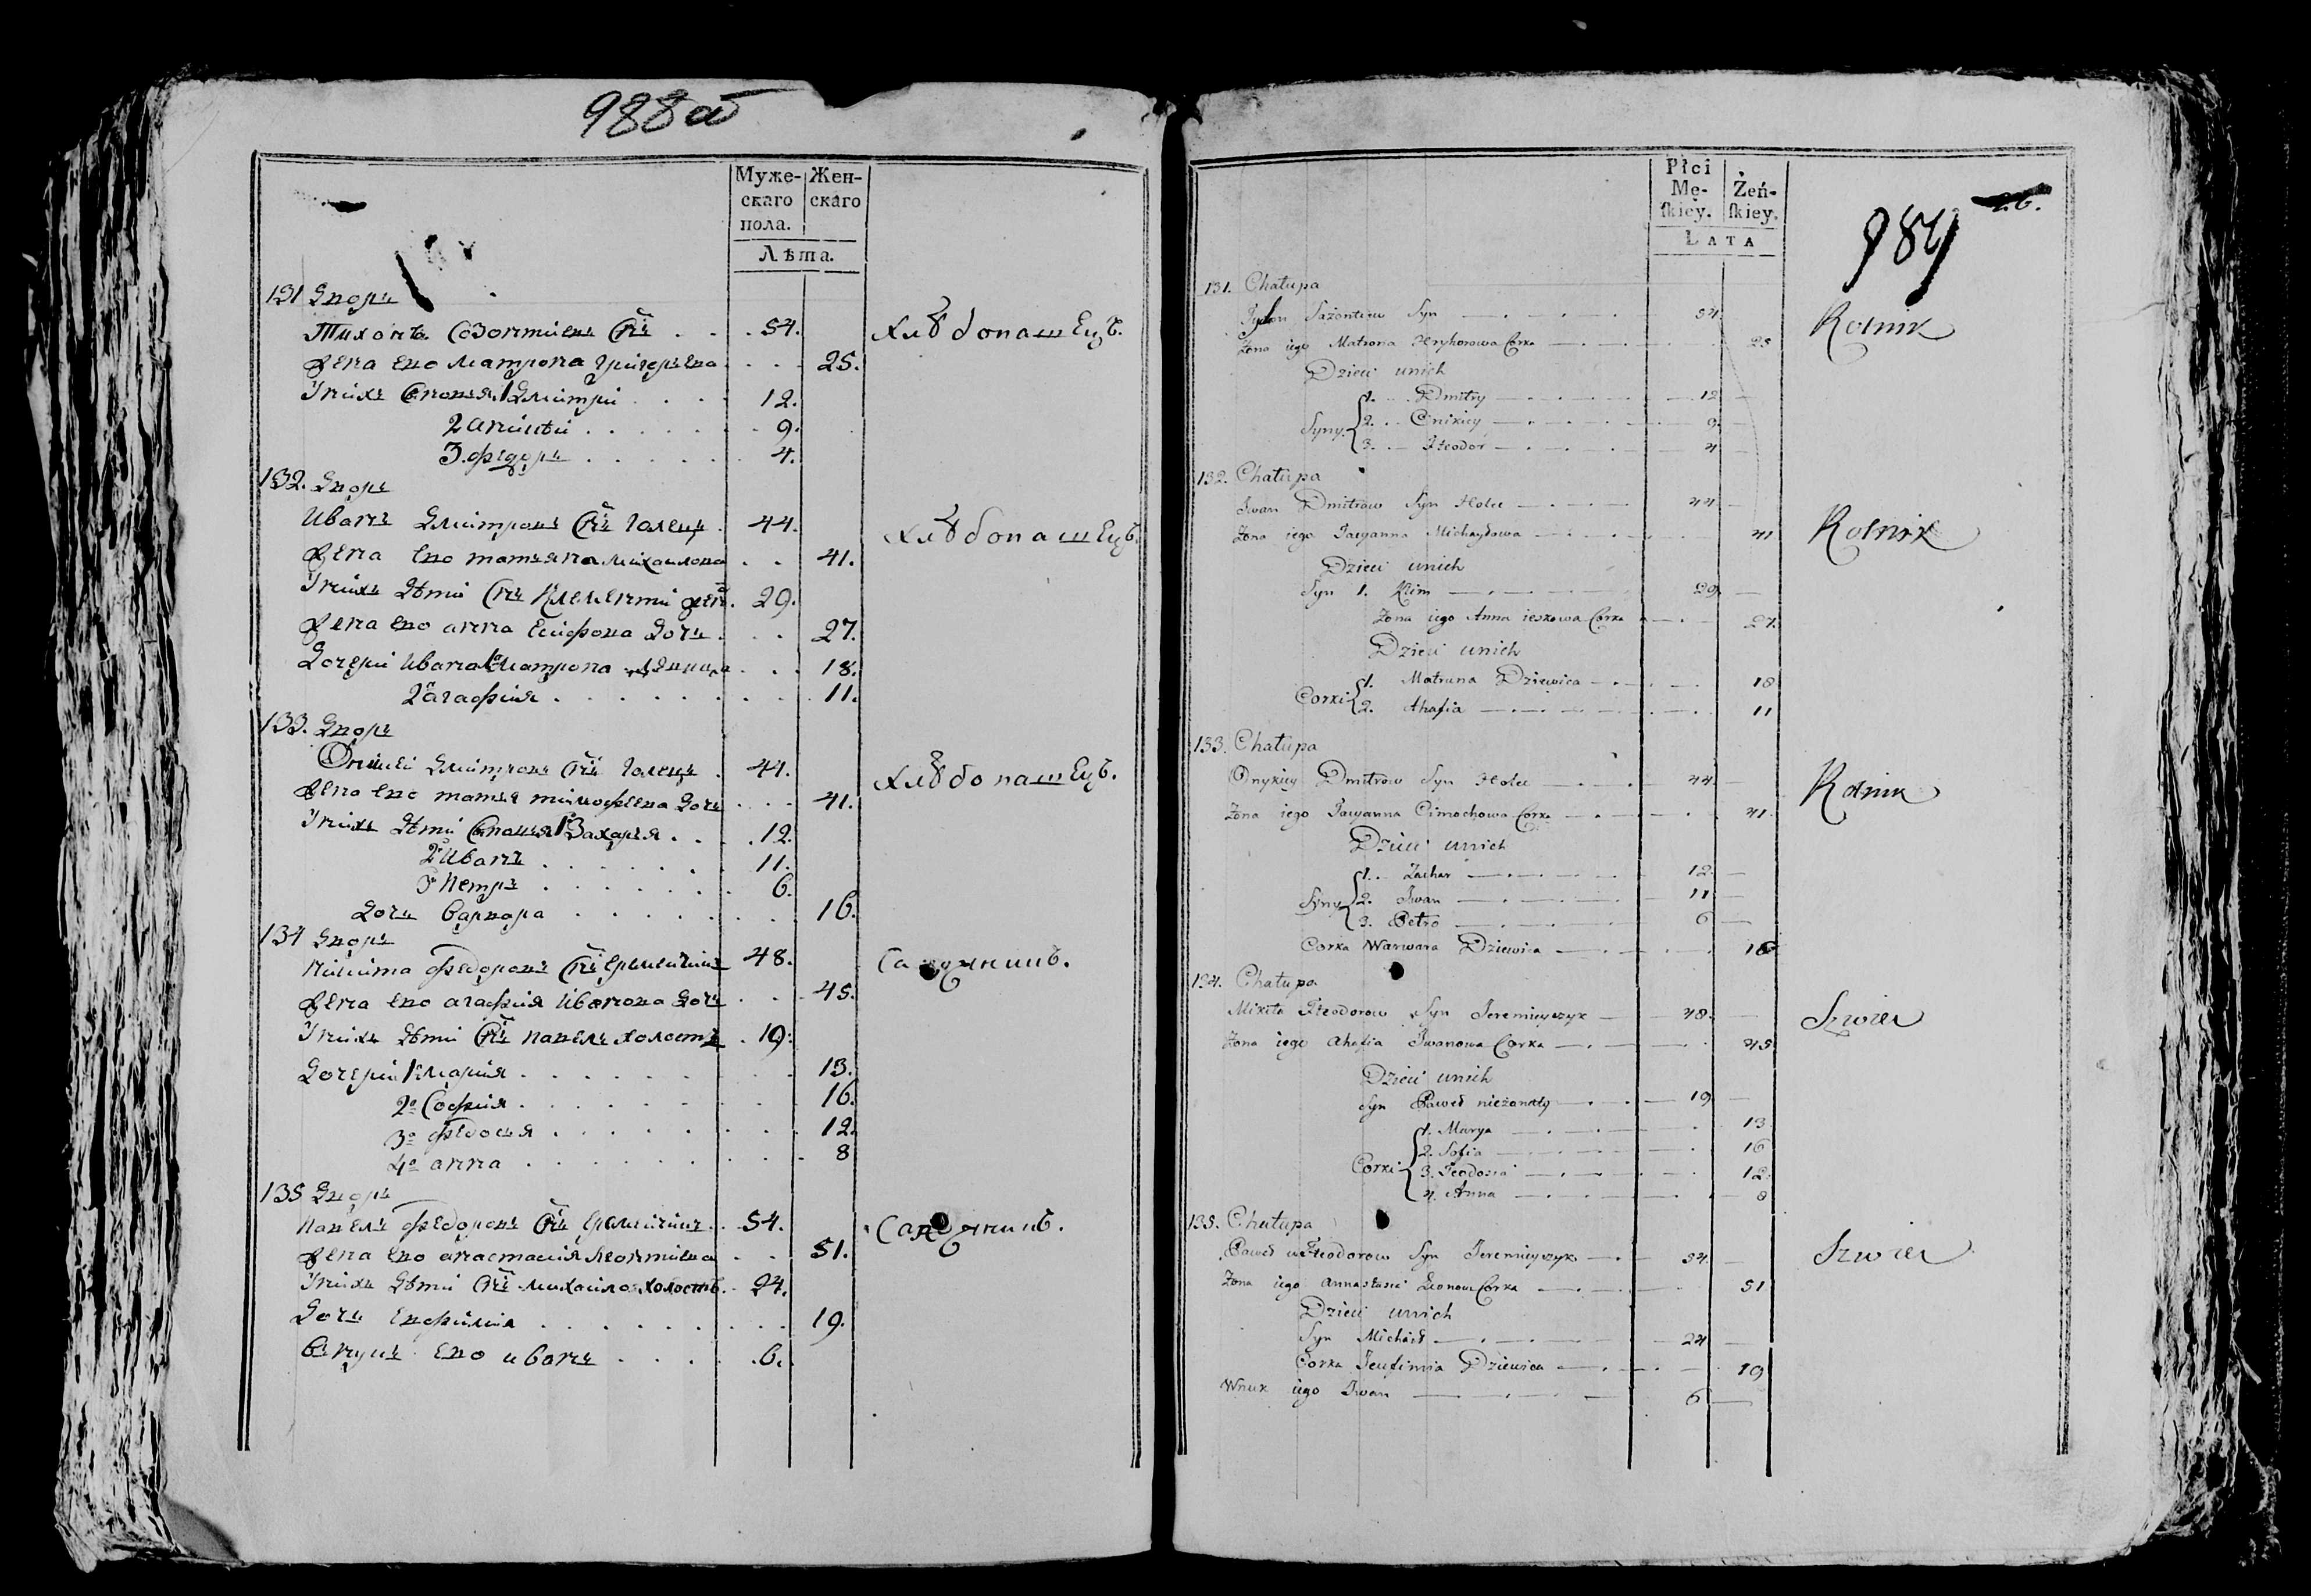 988 об
Муже-
скаго
пола.
Жен-
скаго
Лѣта.
131 Дворъ
Тихонъ Созонтиевъ Снъ 54.
Жена его Матрона Григорьева 25.
Хлѣбопашецъ.
У нихъ Сыновья 1 Дмитрий 12.
2 Аникѣй 9.
3. Федоръ 4.
132. Дворъ
Иванъ Дмитровъ Снъ Голецъ 44.
Жена его Татьяна Михайлова 41.
Хлѣбопашецъ.
У нихъ Дѣти Снъ Клементий 29.
Жена его Анна Дочь 27.
Дочери Ивана 1 Матрона 18.
2 Агафия 11.
133. Дворъ
Оникѣй Дмитровъ Снъ Голецъ 44.
Жена его Татья Тимофеева Дочь 41.
Хлѣбопашецъ.
У нихъ Дѣти Сыновья 1 Захарья 12.
2 Иванъ 11.
3 Петръ 6.
Дочь Варвара 16.
134 Дворъ
Никита Федоровъ Снъ 48.
Жена его Агафия Иванова Дочь 45.
Сапожникъ.
У нихъ Дѣти Снъ Павелъ Холостъ 19.
Дочери 1 Мария 13.
2я София 16.
3я Федосья 12.
4я Анна 8
135 Дворъ
Павелъ Федоровъ Снъ 54.
Жена его Анастасия Леонтиева 51.
Сапожникъ.
У нихъ Дѣти Снъ Михайло Холостъ. 24.
Дочь Евфимия 19.
Внукъ его Иванъ 6.
Płci
Mę-
skiey.
Żeń-
skiey.
LATA
989
26.
131. Chałupa
Tychon Sazontiew Syn 54
Żona iego Matrona Hryhorowa Corka 25
Rolnik
Dzieci unich
Syny 1. Dmitry 12
2. Onikiey 9
3. Fteodor 4
132. Chałupa
Iwan Dmitrow Syn Holec 44
Żona iego Tacyanna Michayłowa 41
Rolnik
Dzieci unich
Syn 1. Klim 29
Żona iego Anna ieskowa Corka 27
Dzieci unich
Corki 1. Matruna Dziewica 18
2. Ahafia 11
133. Chałupa
Onykiey Dmitrow Syn Holec 44
Żona iego Tacyanna Cimochowa Corka 41
Rolnik
Dzieci unich
Syny 1. Zachar 12
2. Iwan 11
3. Petro 6
Corka Warwara Dziewica 16
134. Chałupa
Mikita Fteodorow Syn Jeremieyczyk 48
Żona iego Ahafia Iwanowa Corka 45
Szwiec
Dzieci unich
Syn Paweł nieżonaty 19
Corki 1. Marya 13
2. Sofia 16
3. Feodosia 12
4. Anna 8
135. Chałupa
Paweł Fteodorow Syn Jeremieyczyk 54
Żona iego Annastasia Leonow Corka 51
Szwiec
Dzieci unich
Syn Michał 24
Corka Jeufimia Dziewica 19
Wnuk iego Iwan 6